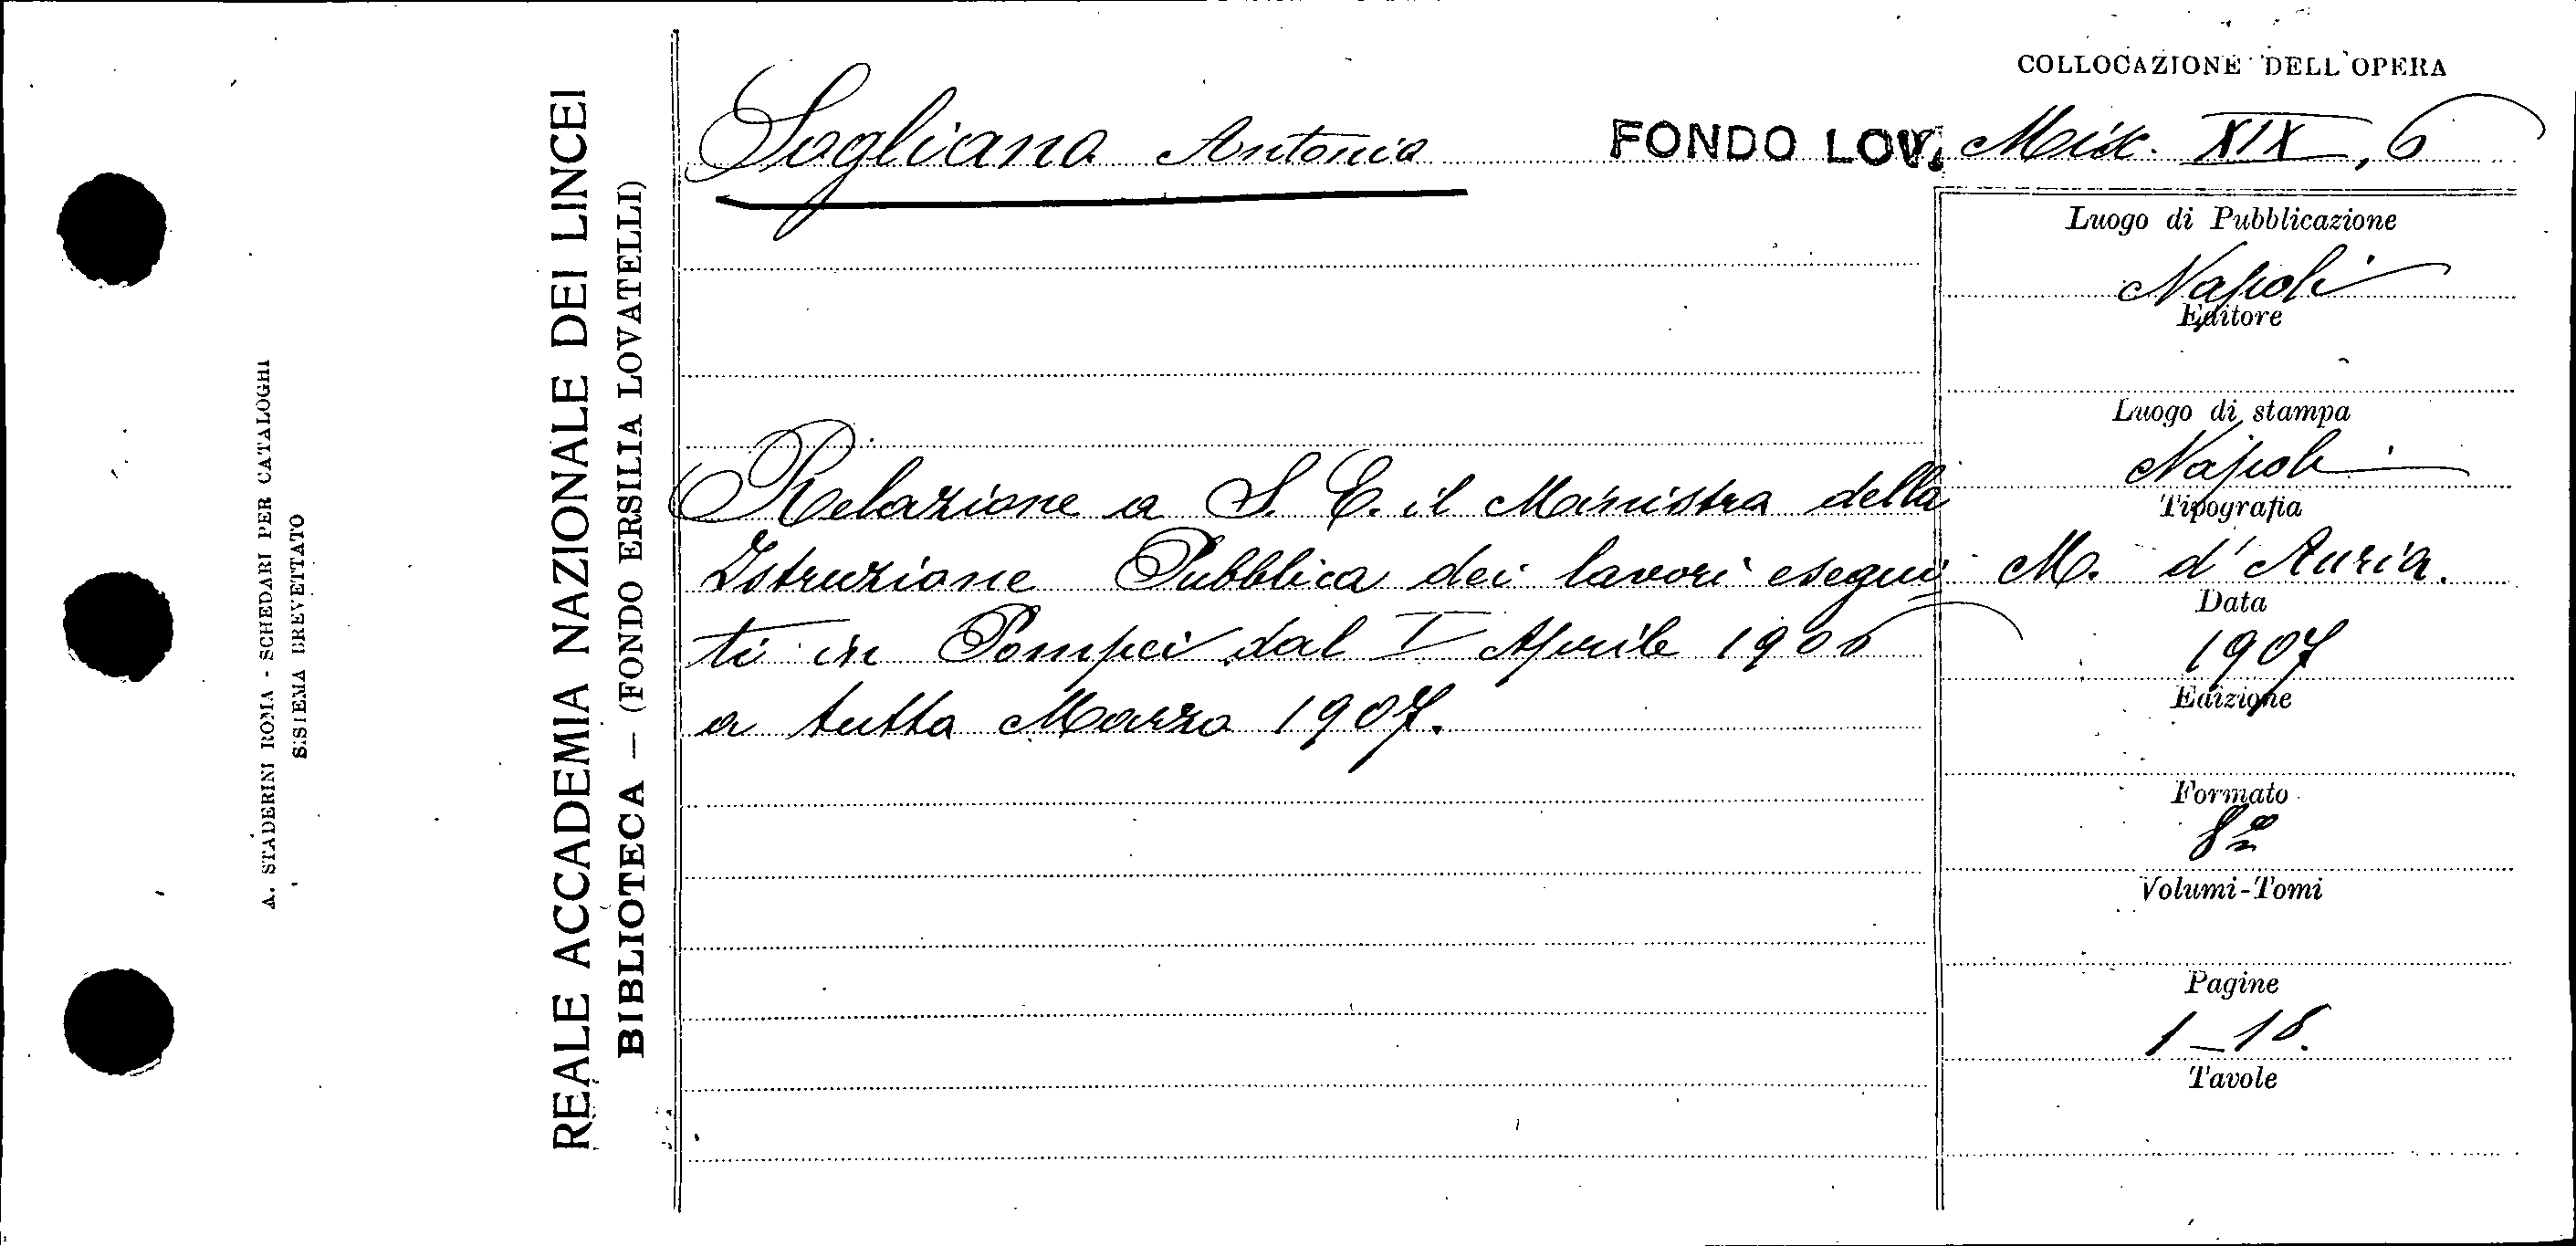 A. STADERINI ROMA - SCHEDARI PER CATALOGHI
SISIEMA BREVETTATO
REALE ACCADEMIA NAZIONALE DEI LINCEI
BIBLIOTECA — (FONDO ERSILIA LOVATELLI)
Sogliano Antonio
FONDO LOV.
COLLOCAZIONE DELL'OPERA
Misc. XIX, 6
Relazione a S. E. il Ministro della
Istruzione Pubblica dei lavori esegui
ti in Pompei dal I Aprile 1906
a tutto Marzo 1907.
Luogo di Pubblicazione
Napoli
Editore
Luogo di stampa
Napoli
Tipografia
M. d'Auria.
Data
1907
Edizione
Formato
8º
Volumi-Tomi
Pagine
1-18.
Tavole